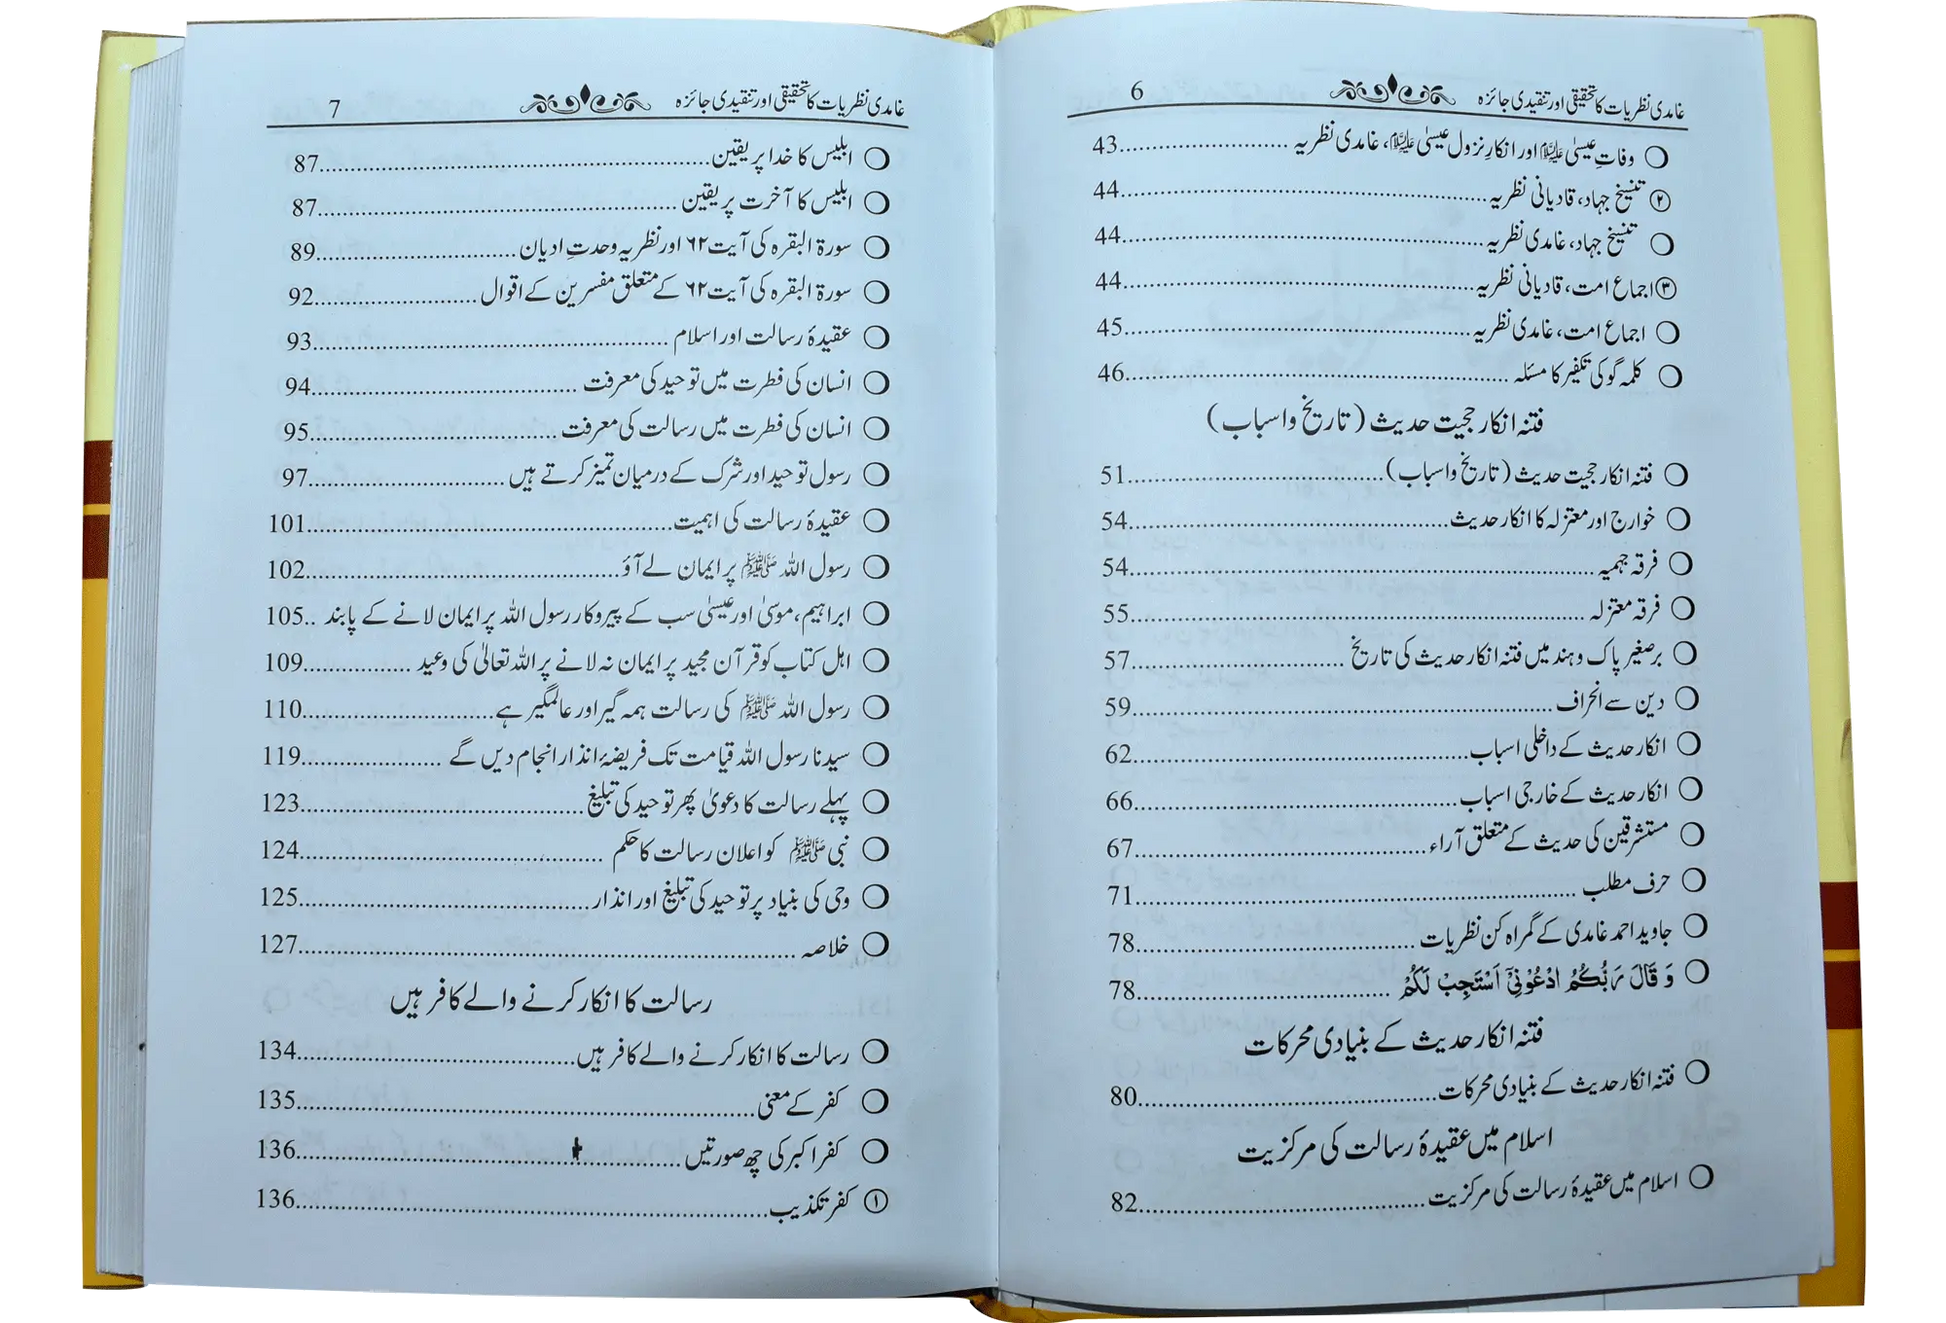 غامدی نظریات کا تحقیقی اور تنقیدی جائزہ 6
وفاتِ عیسیٰ علیہ السلام اور انکارِ نزول عیسیٰ علیہ السلام، غامدی نظریہ ........ 43
② تنسیخ جہاد، قادیانی نظریہ ........ 44
تنسیخ جہاد، غامدی نظریہ ........ 44
③ اجماع امت، قادیانی نظریہ ........ 44
اجماع امت، غامدی نظریہ ........ 45
کلمہ گو کی تکفیر کا مسئلہ ........ 46
فتنہ انکار حجیت حدیث (تاریخ و اسباب)
فتنہ انکار حجیت حدیث (تاریخ و اسباب) ........ 51
خوارج اور معتزلہ کا انکار حدیث ........ 54
فرقہ جہمیہ ........ 54
فرقہ معتزلہ ........ 55
برصغیر پاک و ہند میں فتنہ انکار حدیث کی تاریخ ........ 57
دین سے انحراف ........ 59
انکار حدیث کے داخلی اسباب ........ 62
انکار حدیث کے خارجی اسباب ........ 66
مستشرقین کی حدیث کے متعلق آراء ........ 67
حرف مطلب ........ 71
جاوید احمد غامدی کے گمراہ کن نظریات ........ 78
وَ قَالَ رَبُّكُمُ ادْعُوْنِیْۤ اَسْتَجِبْ لَكُمْ ........ 78
فتنہ انکار حدیث کے بنیادی محرکات
فتنہ انکار حدیث کے بنیادی محرکات ........ 80
اسلام میں عقیدۂ رسالت کی مرکزیت
اسلام میں عقیدۂ رسالت کی مرکزیت ........ 82
غامدی نظریات کا تحقیقی اور تنقیدی جائزہ 7
ابلیس کا خدا پر یقین ........ 87
ابلیس کا آخرت پر یقین ........ 87
سورۃ البقرہ کی آیت ۶۲ اور نظریہ وحدتِ ادیان ........ 89
سورۃ البقرہ کی آیت ۶۲ کے متعلق مفسرین کے اقوال ........ 92
عقیدۂ رسالت اور اسلام ........ 93
انسان کی فطرت میں توحید کی معرفت ........ 94
انسان کی فطرت میں رسالت کی معرفت ........ 95
رسول توحید اور شرک کے درمیان تمیز کرتے ہیں ........ 97
عقیدۂ رسالت کی اہمیت ........ 101
رسول اللہ ﷺ پر ایمان لے آؤ ........ 102
ابراہیم، موسیٰ اور عیسیٰ سب کے پیروکار رسول اللہ پر ایمان لانے کے پابند .. 105
اہل کتاب کو قرآن مجید پر ایمان نہ لانے پر اللہ تعالیٰ کی وعید ........ 109
رسول اللہ ﷺ کی رسالت ہمہ گیر اور عالمگیر ہے ........ 110
سیدنا رسول اللہ قیامت تک فریضۂ انذار انجام دیں گے ........ 119
پہلے رسالت کا دعویٰ پھر توحید کی تبلیغ ........ 123
نبی ﷺ کو اعلان رسالت کا حکم ........ 124
وحی کی بنیاد پر توحید کی تبلیغ اور انذار ........ 125
خلاصہ ........ 127
رسالت کا انکار کرنے والے کافر ہیں
رسالت کا انکار کرنے والے کافر ہیں ........ 134
کفر کے معنی ........ 135
کفر اکبر کی چھ صورتیں ........ 136
① کفر تکذیب ........ 136